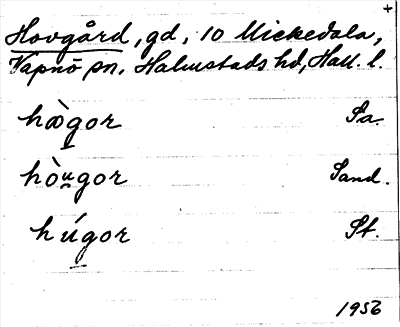 +
Hovgård, gd, 10 Mickedala,
Vapnö sn, Halmstads hd, Hall. l.
hægor Sa.
hòu̯gor Sand.
húgor St.
1956